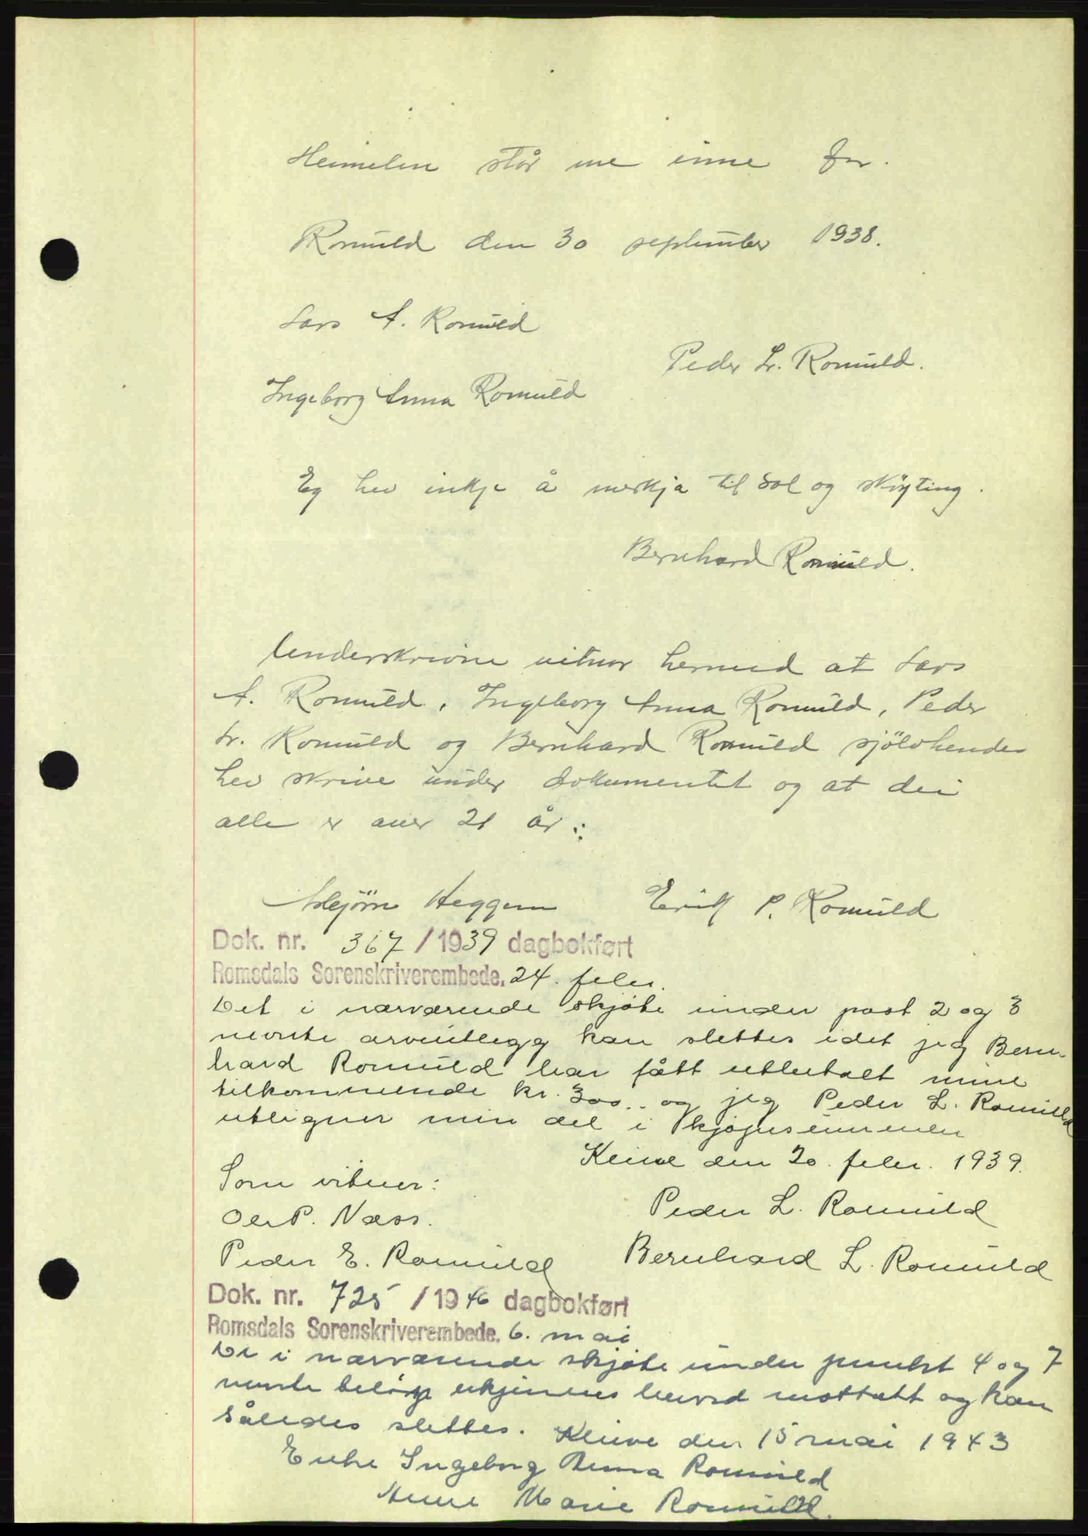 Heimelen står me inne for.
Romuld den 30 september 1938.
Lars A. Romuld
Peder L. Romuld.
Ingeborg Anna Romuld
Eg hev inkje å merkja til sal og skøyting.
Bernhard Romuld.
Underskrivne vitnar hermed at Lars
A. Romuld, Ingeborg Anna Romuld, Peder
L. Romuld og Bernhard Romuld sjölvhender
hev skrive under dokumentet og at dei
alle er over 21 år:
Heggem Erik P. Romuld
Dok. nr. 367/1939 dagbokført
Romsdals Sorenskriverembede. 24. febr.
Det i nærværende skjøte under post 2 og 3
nevnte arveutlegg kan slettes idet jeg Bern-
hard Romuld har fått utbetalt mine
tilkommende kr. 300.. og jeg Peder L. Romuld
utligner min del i kjøpesummen
Kleive den 20. febr. 1939.
Som vitner:
Peder L. Romuld
Ole P. Næss.
Peder E. Romuld
Bernhard L. Romuld
Dok. nr. 725/1946 dagbokført
Romsdals Sorenskriverembede. 6. mai
De i nærværende skjøte under punkt 4 og 7
nevnte beløp erkjennes herved mottatt og kan
således slettes. Kleive den 15 mai 1943
Enke Ingeborg Anna Romuld
Anne Marie Romuld.